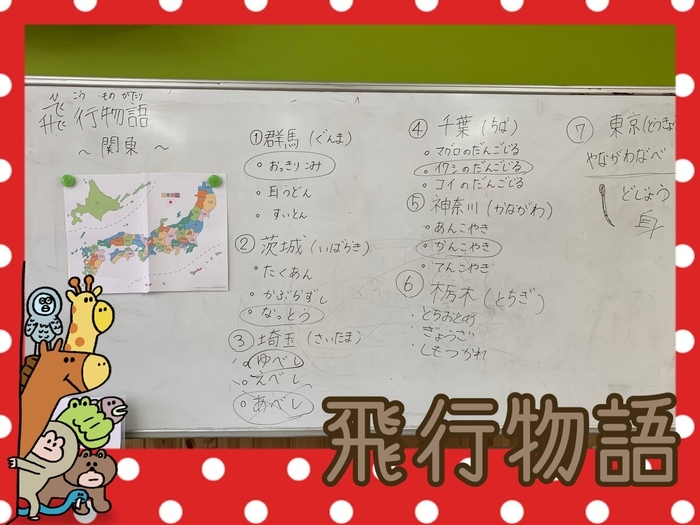 ひ こう ものがたり
飛行物語
～ 関東 ～
① 群馬 (ぐんま)
。おっきりこみ
。耳うどん
。すいとん
② 茨城 (いばらき)
。たくあん
。かぶらずし
。なっとう
③ 埼玉 (さいたま)
。ゆべし
。えべし
。あべし
④ 千葉 (ちば)
。マグロのだんごじる
。イワシのだんごじる
。コイのだんごじる
⑤ 神奈川 (かながわ)
。あんこやき
。かんこやき
。てんこやき
⑥ 栃木 (とちぎ)
・とちおとめ
・ぎょうざ
・しもつかれ
⑦ 東京 (とうきょ
やながわなべ
どじょう
身
飛行物語